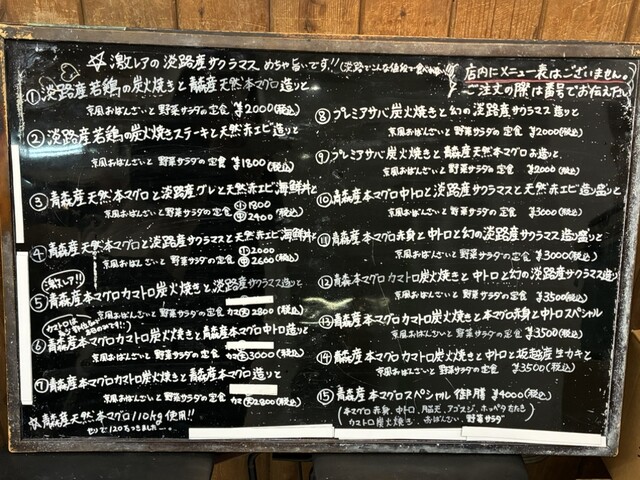 ☆激レアの淡路産サクラマス めちゃ旨いです!!
店内にメニュー表はございません。
ご注文の際は番号でお伝え下さい
①淡路産若鶏の炭火焼きと青森産天然本マグロ造りと
京風おばんざいと野菜サラダの定食 ¥2000(税込)
②淡路産若鶏の炭火焼きステーキと天然赤エビ造りと
京風おばんざいと野菜サラダの定食 ¥1800(税込)
③青森産天然本マグロと淡路産グレと天然赤エビ海鮮丼と
京風おばんざいと野菜サラダの定食 小1800
中2400(税込)
④青森産天然本マグロと淡路産サクラマスと天然赤エビ海鮮丼と
京風おばんざいと野菜サラダの定食 小2000
中2600(税込)
激レア!!
⑤青森産本マグロカマトロ炭火焼きと淡路産サクラマス造りと
京風おばんざいと野菜サラダの定食 カマ大2800(税込)
カマトロは
⑥青森産本マグロカマトロ炭火焼きと青森産本マグロ中トロ造りと
京風おばんざいと野菜サラダの定食 カマ大3000(税込)
⑦青森産本マグロカマトロ炭火焼きと青森産本マグロ造りと
京風おばんざいと野菜サラダの定食 カマ大2800(税込)
☆青森産天然本マグロ110kg使用!!
セリで120万つきました
⑧プレミアサバ炭火焼きと幻の淡路産サクラマス造りと
京風おばんざいと野菜サラダの定食 ¥2000(税込)
⑨プレミアサバ炭火焼きと青森産天然本マグロお造りと
京風おばんざいと野菜サラダの定食 ¥2000(税込)
⑩青森産本マグロ中トロと淡路産サクラマスと天然赤エビ造り盛りと
京風おばんざいと野菜サラダの定食 ¥3000(税込)
⑪青森産本マグロ赤身と中トロと幻の淡路産サクラマス造り盛りと
京風おばんざいと野菜サラダの定食 ¥3000(税込)
⑫青森産本マグロカマトロ炭火焼きと中トロと幻の淡路産サクラマス造り
京風おばんざいと野菜サラダの定食 ¥3500(税込)
⑬青森産本マグロカマトロ炭火焼きと本マグロ赤身と中トロスペシャル
京風おばんざいと野菜サラダの定食 ¥3500(税込)
⑭青森産本マグロカマトロ炭火焼きと中トロと坂越産生カキと
京風おばんざいと野菜サラダの定食 ¥3500(税込)
⑮青森産本マグロスペシャル御膳 ¥4000(税込)
(本マグロ赤身、中トロ、脳天、アゴスジ、ホッペタたたき
カマトロ炭火焼き、おばんざい、野菜サラダ)